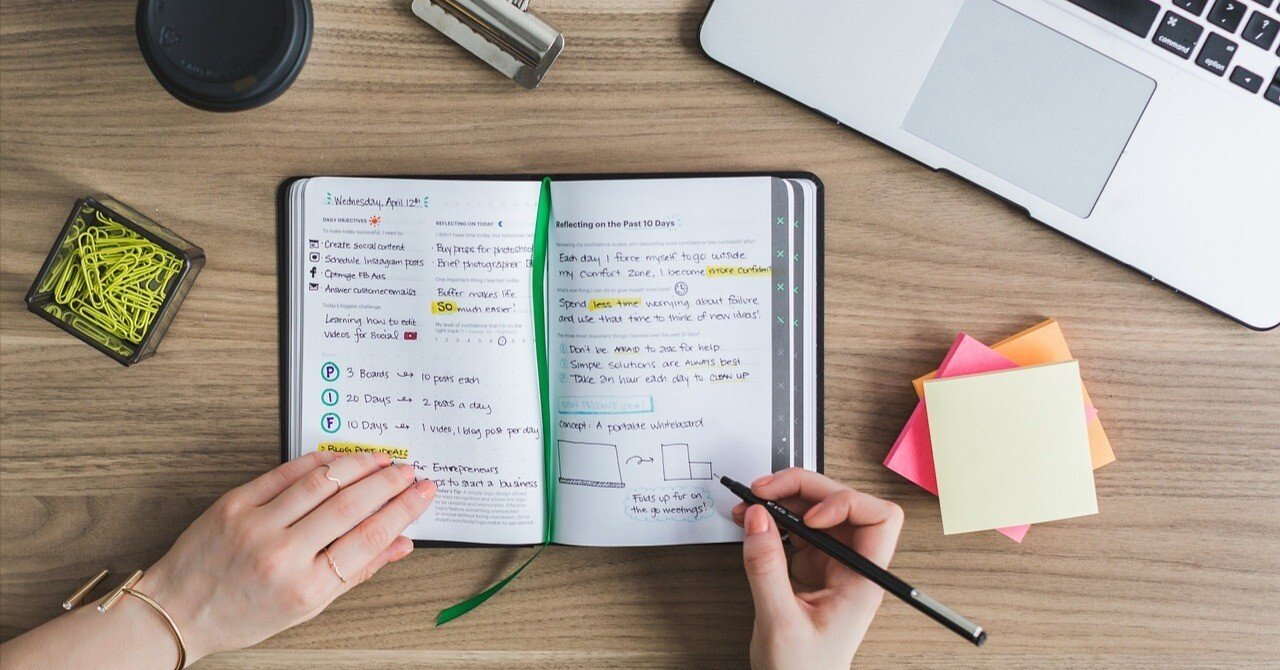 Wednesday, April 12th
DAILY OBJECTIVES
To make today successful, I need to:
Create social content
Schedule Instagram posts
Optimize FB Ads
Answer customer emails
Today's biggest challenge:
Learning how to edit
videos for social
P 3 Boards → 10 posts each
I 20 Days → 2 posts a day
F 10 Days → 1 video, 1 blog post per day
BLOG POST IDEAS
for Entrepreneurs
to start a business
REFLECTING ON TODAY
I didn't have time today, but tomorrow I
Buy props for photoshoot
Brief photographer
One important thing I learned today
Buffer makes life
SO much easier!
My level of confidence that I'm on the
right track
1 2 3 4 5 6 7 8 9 10
Today's Tip: A simple logo design
Reflecting on the Past 10 Days
Reviewing my confidence scores, am I becoming more confident or less confident? Why?
Each day I force myself to go outside
my comfort zone, I become more confident
What's one thing I can do to give myself more time?
Spend less time worrying about failure
and use that time to think of new ideas!
The three most important things I learned over the past 10 days:
1 Don't be AFRAID to ask for help
2 Simple solutions are ALWAYS best
3 Take an hour each day to CLEAN UP
NEW PRODUCT IDEA!
Concept: A portable whiteboard
Folds up for on
the go meetings!
command
option